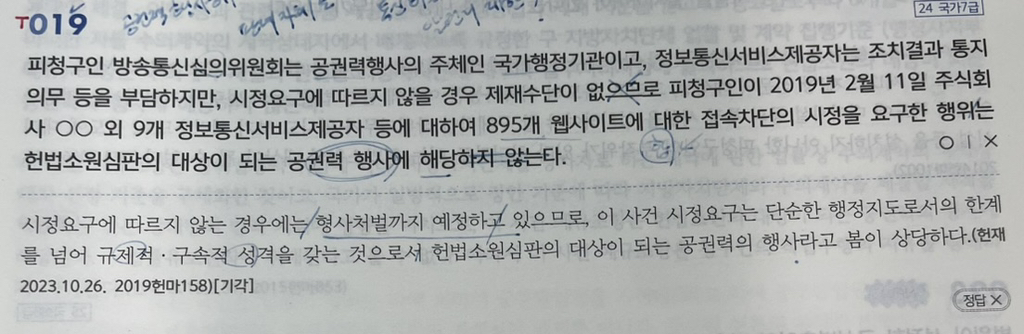 T019
24 국가7급
피청구인 방송통신심의위원회는 공권력행사의 주체인 국가행정기관이고, 정보통신서비스제공자는 조치결과 통지
의무 등을 부담하지만, 시정요구에 따르지 않을 경우 제재수단이 없으므로 피청구인이 2019년 2월 11일 주식회
사 ○○ 외 9개 정보통신서비스제공자 등에 대하여 895개 웹사이트에 대한 접속차단의 시정을 요구한 행위는
헌법소원심판의 대상이 되는 공권력 행사에 해당하지 않는다.
O | X
시정요구에 따르지 않는 경우에는 형사처벌까지 예정하고 있으므로, 이 사건 시정요구는 단순한 행정지도로서의 한계
를 넘어 규제적·구속적 성격을 갖는 것으로서 헌법소원심판의 대상이 되는 공권력의 행사라고 봄이 상당하다.(헌재
2023.10.26. 2019헌마158)[기각]
정답 X